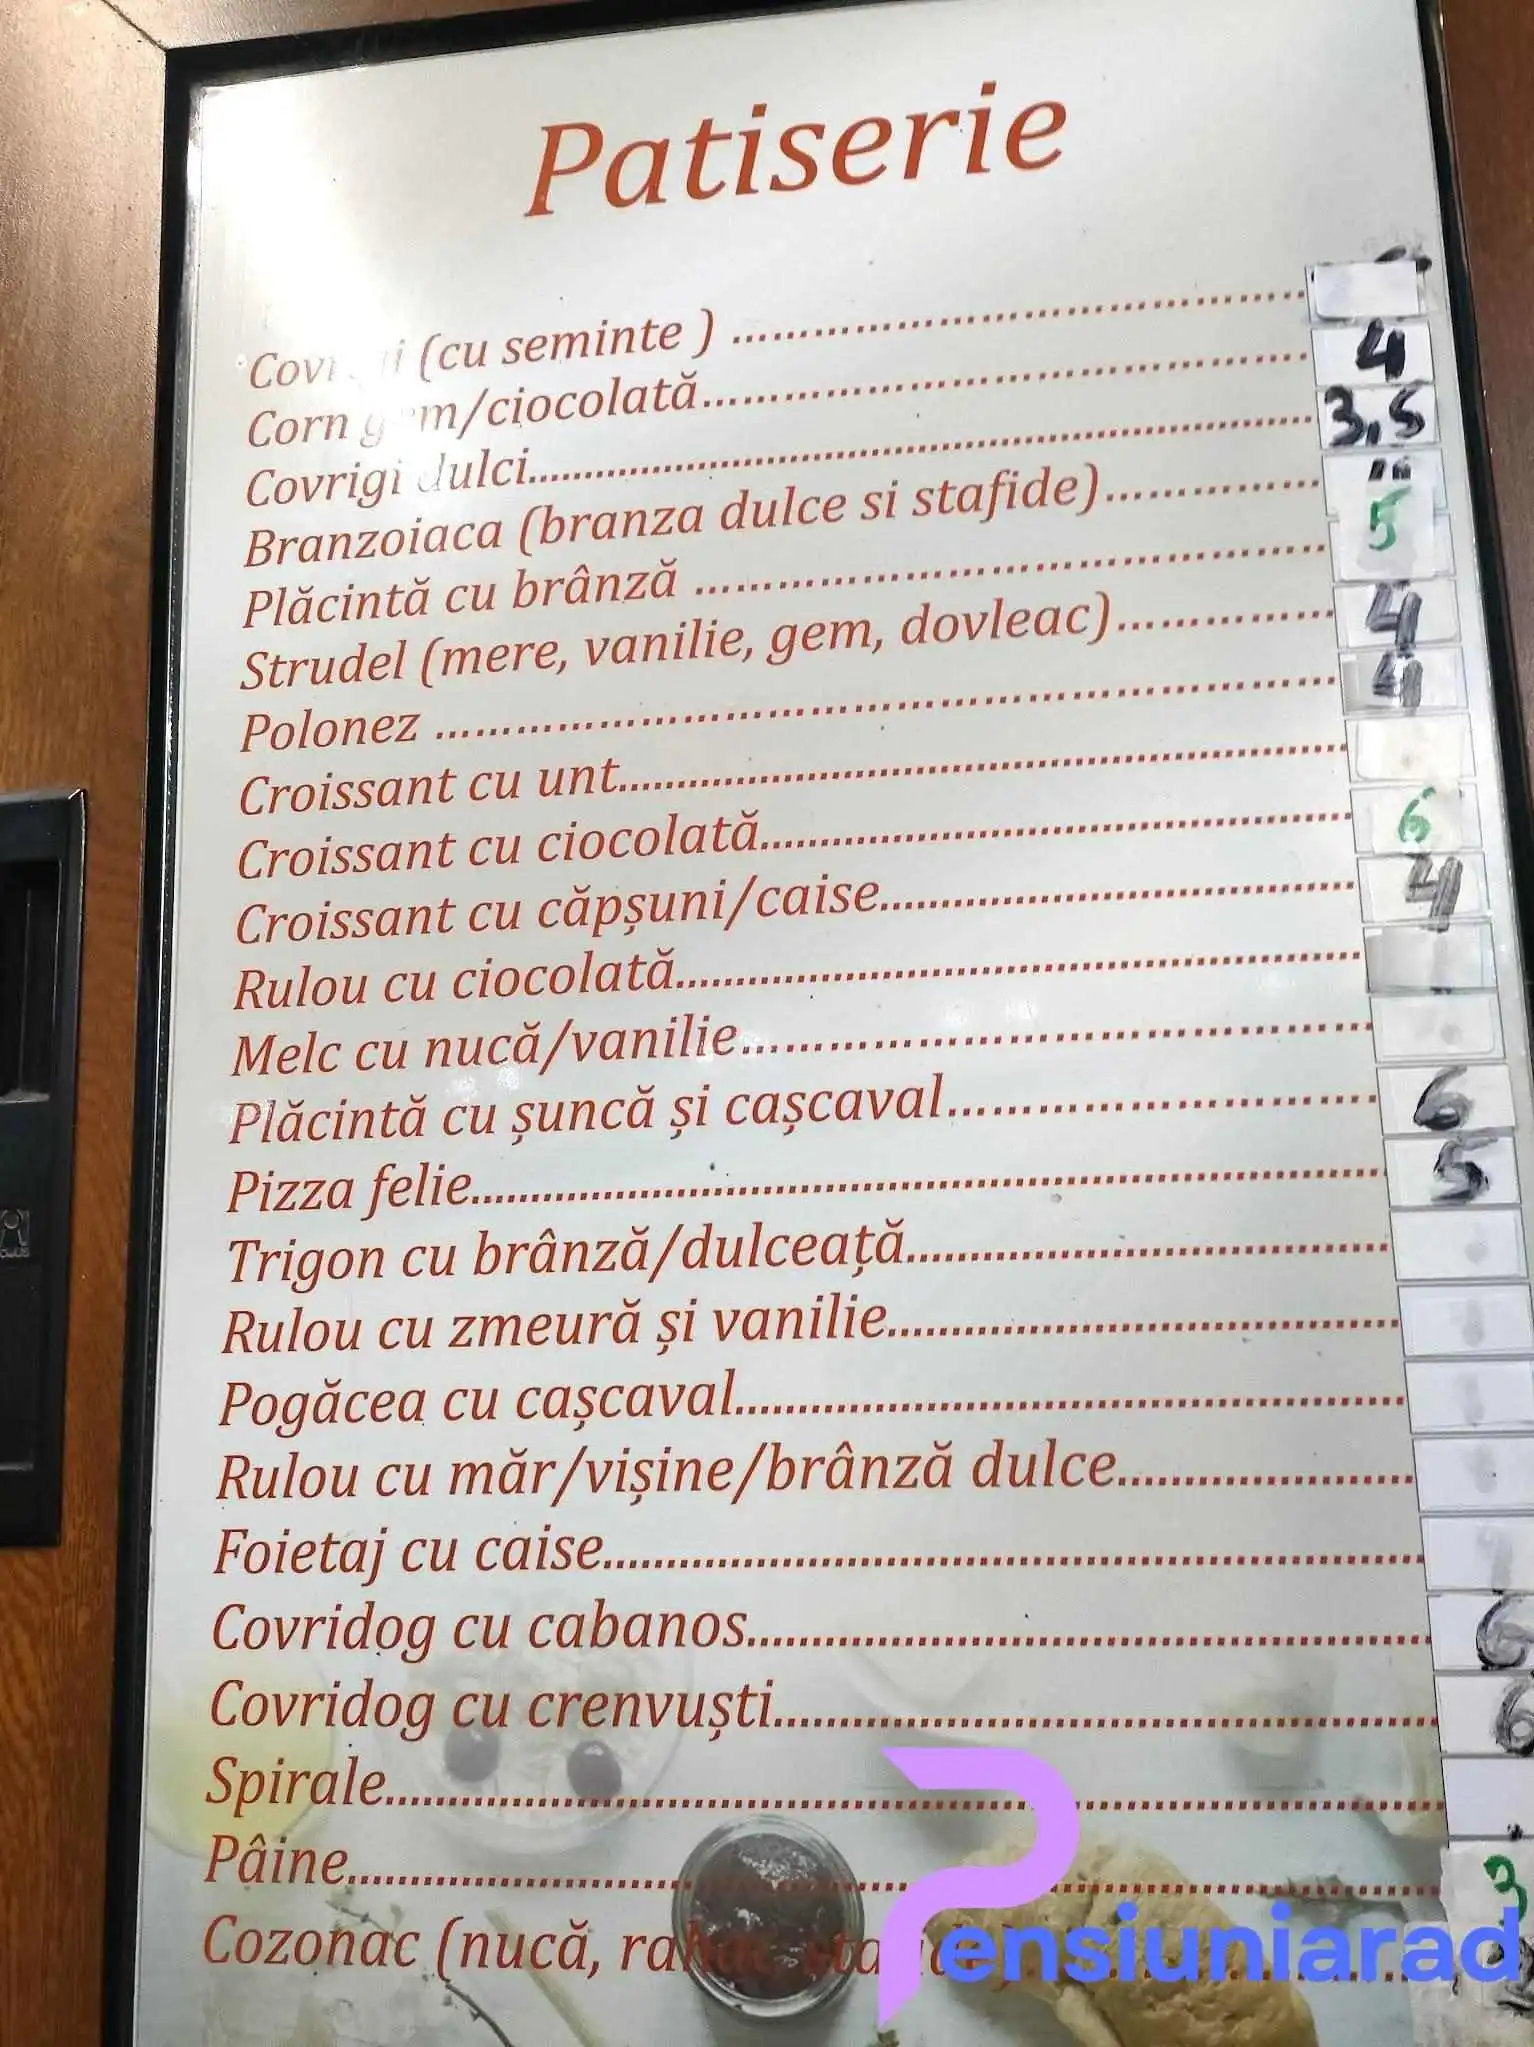 Patiserie
Covrigi (cu seminte ) ........................................
Corn gem/ciocolată........................................ 4
Covrigi dulci........................................ 3,5
Branzoiaca (branza dulce si stafide)...............
Plăcintă cu brânză ........................................ 5
Strudel (mere, vanilie, gem, dovleac)............... 4
Polonez ........................................ 4
Croissant cu unt........................................
Croissant cu ciocolată........................................ 6
Croissant cu căpșuni/caise........................................ 4
Rulou cu ciocolată........................................
Melc cu nucă/vanilie........................................
Plăcintă cu șuncă și cașcaval.............................. 6
Pizza felie........................................ 5
Trigon cu brânză/dulceață........................................
Rulou cu zmeură și vanilie........................................
Pogăcea cu cașcaval........................................
Rulou cu măr/vișine/brânză dulce....................
Foietaj cu caise........................................
Covridog cu cabanos........................................ 6
Covridog cu crenvuști........................................ 6
Spirale........................................
Pâine........................................ 3
Cozonac (nucă,
Pensiuniarad